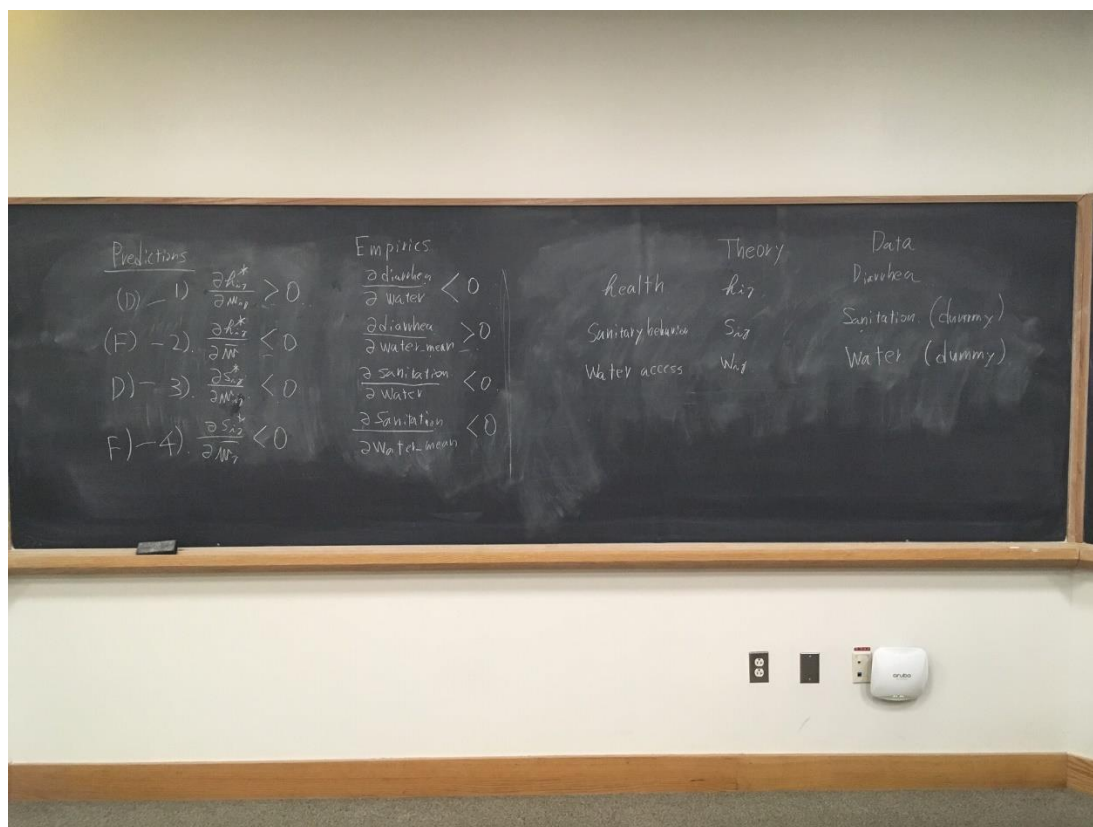 Predictions
(D) - 1) ∂h*ij/∂wij > 0
(F) - 2). ∂h*ij/∂w̄ < 0
D) - 3). ∂s*ij/∂wij < 0
F) - 4). ∂s*ij/∂w̄j < 0
Empirics
∂ diarrhea/∂ water < 0
∂ diarrhea/∂ water_mean > 0
∂ sanitation/∂ water < 0
∂ Sanitation/∂ Water_mean < 0
Theory Data
health hij Diarrhea
Sanitary behavior Sij Sanitation (dummy)
Water access Wij Water (dummy)
aruba